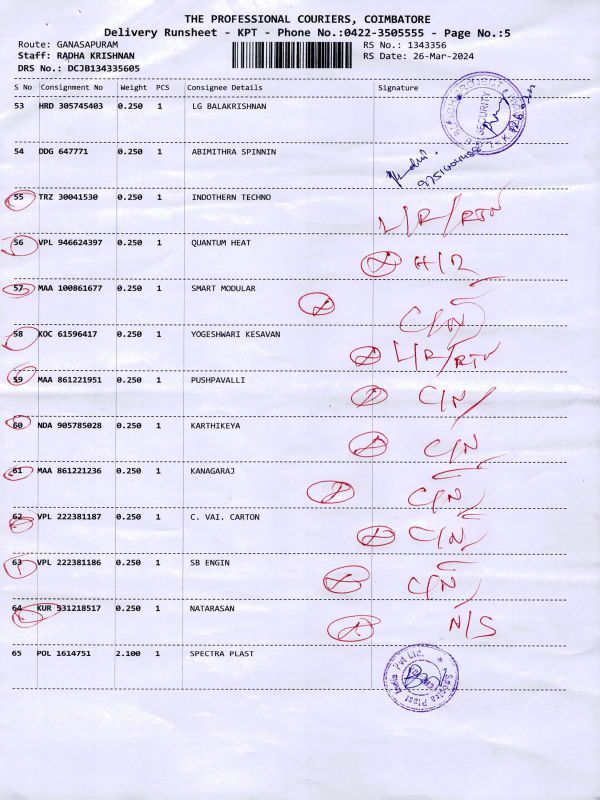 THE PROFESSIONAL COURIERS, COIMBATORE
Delivery Runsheet - KPT - Phone No.:0422-3505555 - Page No.:5
Route: GANASAPURAM RS No.: 1343356
Staff: RADHA KRISHNAN RS Date: 26-Mar-2024
DRS No.: DCJB134335605
S No Consignment No Weight PCS Consignee Details Signature
53 HRD 305745403 0.250 1 LG BALAKRISHNAN
SECURITY
54 DDG 647771 0.250 1 ABIMITHRA SPINNIN
55 TRZ 30041530 0.250 1 INDOTHERN TECHNO L/R/RTN
56 VPL 946624397 0.250 1 QUANTUM HEAT
57 MAA 100861677 0.250 1 SMART MODULAR C/N
58 KOC 61596417 0.250 1 YOGESHWARI KESAVAN L/R/RTN
59 MAA 861221951 0.250 1 PUSHPAVALLI C/N
60 NDA 905785028 0.250 1 KARTHIKEYA C/N
61 MAA 861221236 0.250 1 KANAGARAJ C/N
62 VPL 222381187 0.250 1 C. VAI. CARTON C/N
63 VPL 222381186 0.250 1 SB ENGIN C/N
64 KUR 531218517 0.250 1 NATARASAN N/S
65 POL 1614751 2.100 1 SPECTRA PLAST
Spectra Plast India Pvt Ltd.